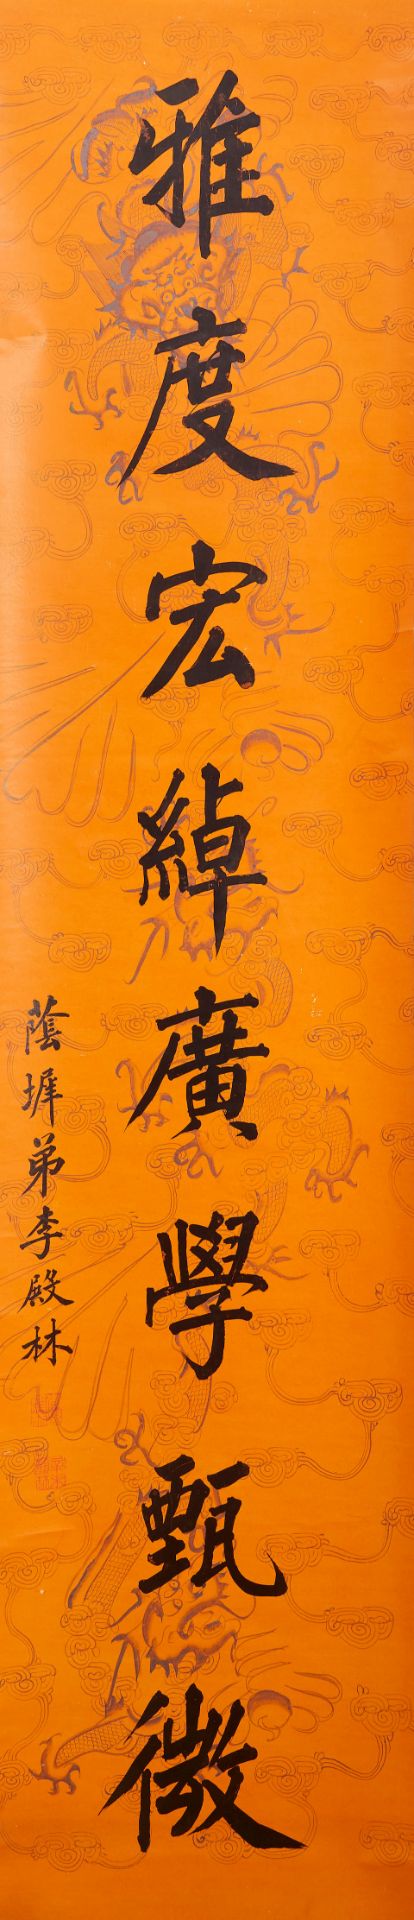 雅度宏綽廣學甄微
蔭墀弟李殿林